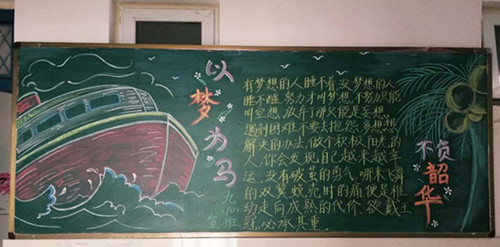 以梦为马
有梦想的人睡不着,没梦想的人
睡不醒,努力才叫梦想,不努力只能
叫空想,放弃了那只能是妄想。
遇到困难不要去抱怨,多想想
解决的办法,做个积极阳光的
人,你会发现,自己越来越幸
运,没有破茧的勇气,哪来飞舞
的双翼,蜕壳时的痛便是推
动走向成熟的代价,欲戴王
冠,必承其重。
九
班
不负
韶华